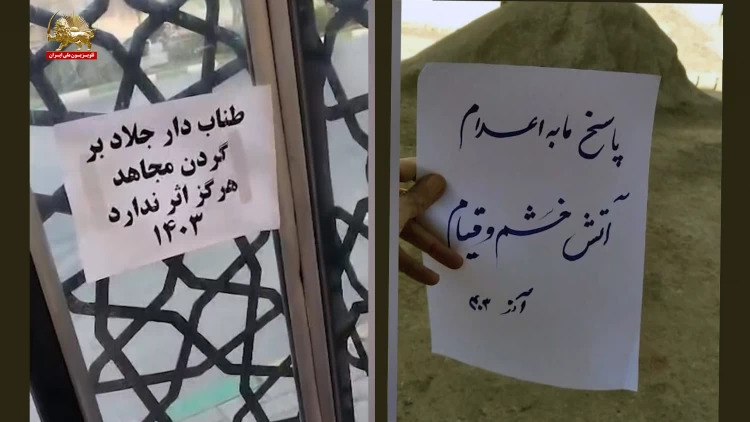 تلویزیون ملی ایران
طناب دار جلاد بر
گردن مجاهد
هرگز اثر ندارد
۱۴۰۳
پاسخ ما به اعدام
آتش خشم و قیام
آذر ۱۴۰۳